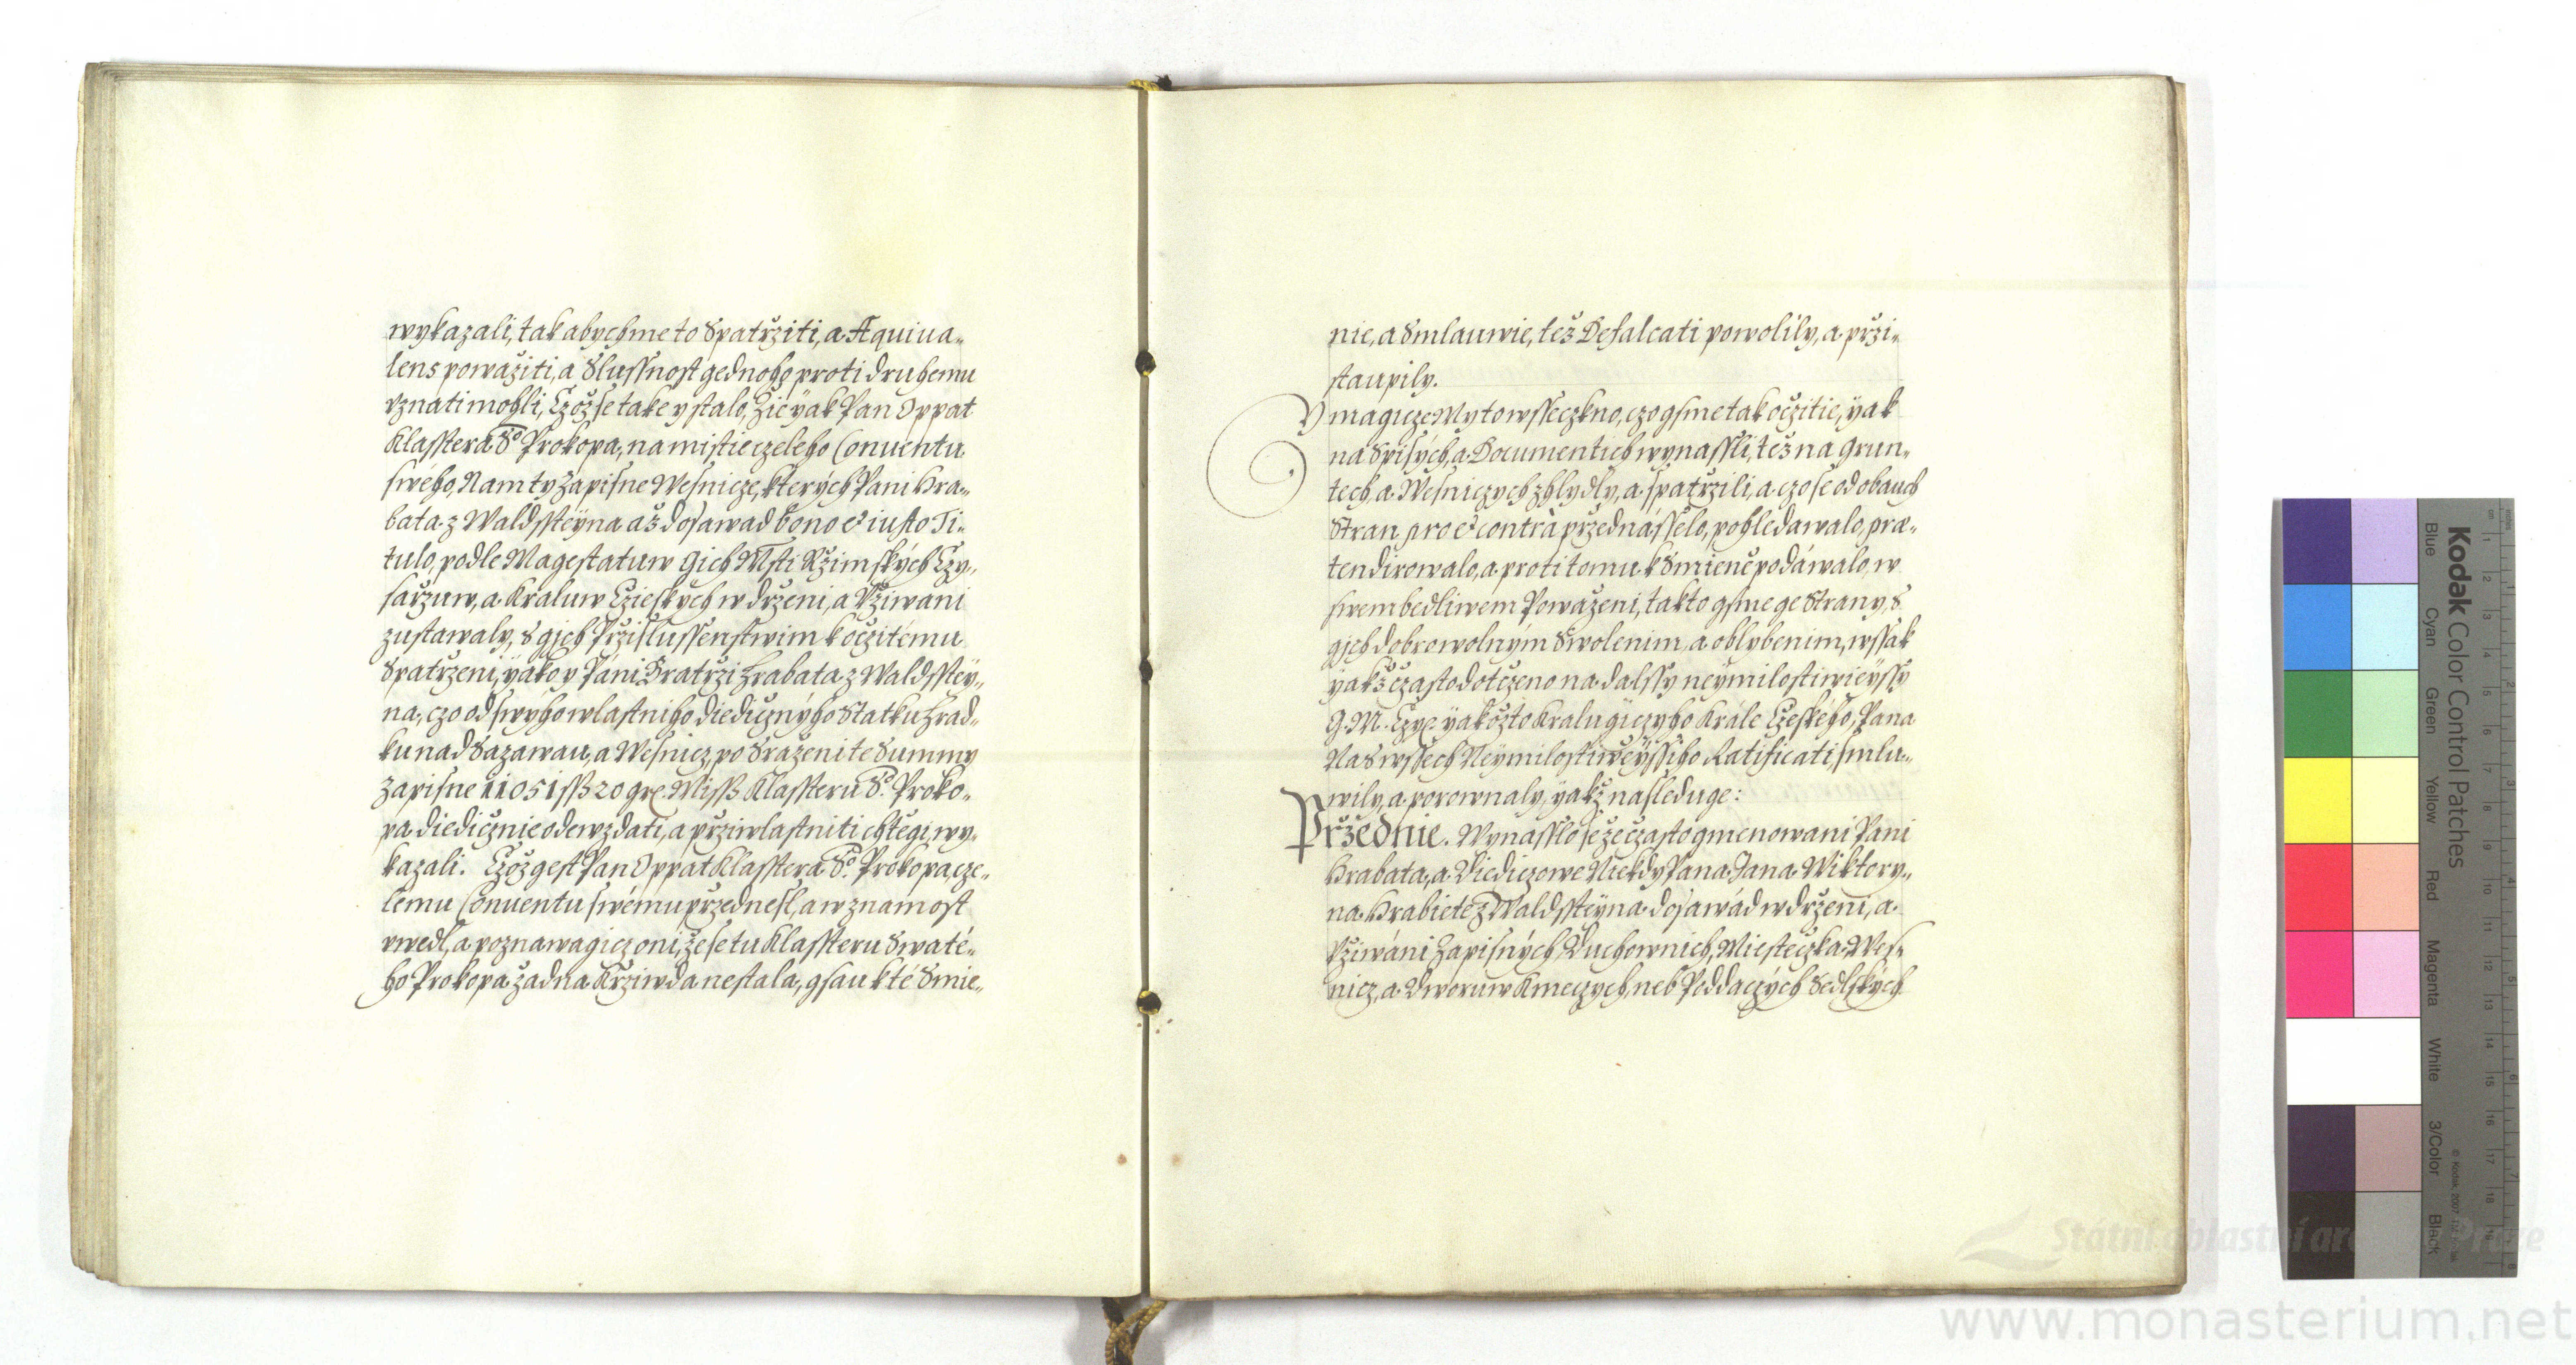 wykazali, tak abychme to Spatrziti, a Æquiua„
lens powážiti, a Slussnost gednoho proti druhemu
vznati mohli, Czož se take y stalo, Žie yak Pan Oppat
Klasstera S° Prokopa, na mistie czeleho Conuentu
swého, Nam ty Zapisne Wesnicze, kterych Pani Hra„
bata z Waldssteyna až dosawad bono & iusto Ti„
tulo, podle Magestatuw Gich Msti Rzimských Czy„
sarzuw, a Kraluw Czieskych w drženi, a Vžiwani
zustawaly, s gjch Przislussenstwim k oczitému
Spatrzeni, yako y Páni Bratrzi Hrabata z Waldsstey„
na, czo od swýho wlastniho diedicznýho Statku Hrad„
ku nad Sazawau, a Wesnicz, po Sraženi te Summy
Zapisne 11051 ss 20 gr. Miss. Klassteru S° Proko„
pa diedicznie odewzdati, a przwlastniti chtegi, wy„
kazali. Czož gest Pan Oppat Klasstera S° Prokopa, cze„
lému Conuentu swému przednesl, a w znamost
vwedl, a poznawagicz oni, že se tu Klassteru Swaté„
ho Prokopa žadna Krziwda nestala, gsau k té Smie„
nie, a Smlauwie, též Defalcati powolily, a przi„
staupily.
Y magicze My to wsseczkno, czo gsme tak oczitie, yak
na Spisých, a Documentich wynassli, též na Grun„
tech, a Wesniczych zhlydly, a spatrzili, a czo se od obauch
Stran pro & contrà przednásselo, pohledawalo, præ„
tendirowalo, a proti tomu k Smiené podáwalo, w
swem bedliwém Powaženi, takto gsme ge Strany, s
gjch dobrowolným Swolenim, a oblybenim, wssak
yakž czasto dotczeno na dalssy neymilostiwieyssy
G. M. Czye. yakožto Kralugiczyho Krále Czeského, Pana
Nás wssech Neymilostiweyssiho Ratificati, smlu„
wily, a porownaly, yakž nasleduge:
Przednie. Wynasslo se že czasto gmenowani Pani
Hrabata, a Diediczowe Niekdy Pana Jana Wiktory„
na Hrabiete z Waldssteyna dosawád w drženi, a
Vžiwáni Zapisných Duchownich, Miesteczka, Wes„
nicz, a Dworuw Kmeczych, neb Poddaczých Sedlských